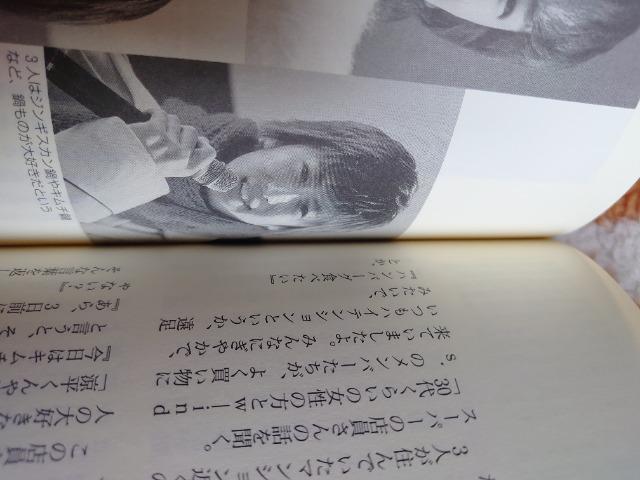 3人はジンギスカン鍋やキムチ鍋
など、鍋ものが大好きだという
3人が住んでいたマンション近くの
スーパーの店員さんの話を聞く。
「30代くらいの女性の方とwind
s.のメンバーたちが、よく買い物に
来ていましたよ。みんなにぎやかで、
いつもハイテンションというか、遠足
みたいで、
『ハンバーグ食べたい』
とか、
この店員
人の大好きな
「涼平くんや
『今日はキムチ
と言うと、そ
『あら、3日前に
やない？』
そんな言葉を返し